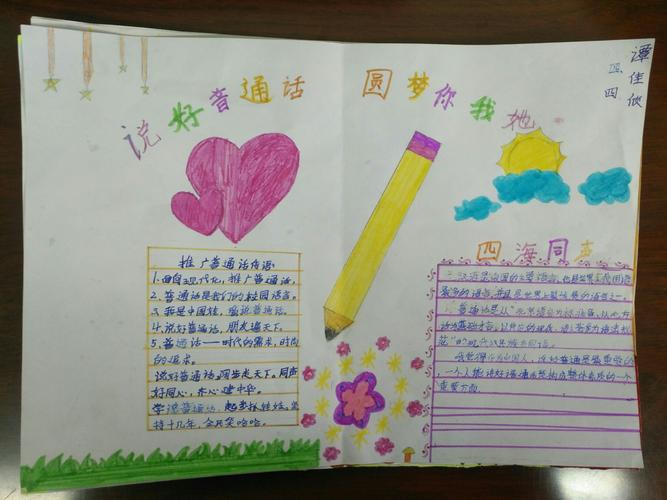 说好普通话 圆梦你我她
四四
谭佳欣
推广普通话标语:
1.面向现代化,推广普通话。
2.普通话是我们的校园语言。
3.我是中国娃,爱说普通话。
4.说好普通话,朋友遍天下。
5.普通话——时代的需求,时尚
的追求。
说好普通话,阔步走天下。同声
好同心,齐心建中华。
学说普通话,起步抓娃娃。坚
持十几年,全民笑哈哈。
四海同声
汉语是我国的主要语言,也是世界
最多的语言,并且是世界上最
普通话是以"北京语音为标准音,以北方
话为基础方言,以
范"的现代汉民族共同语。
我觉得作为中国人,说好普通话是最重要的,
一个人能说好普通话
重要方面。